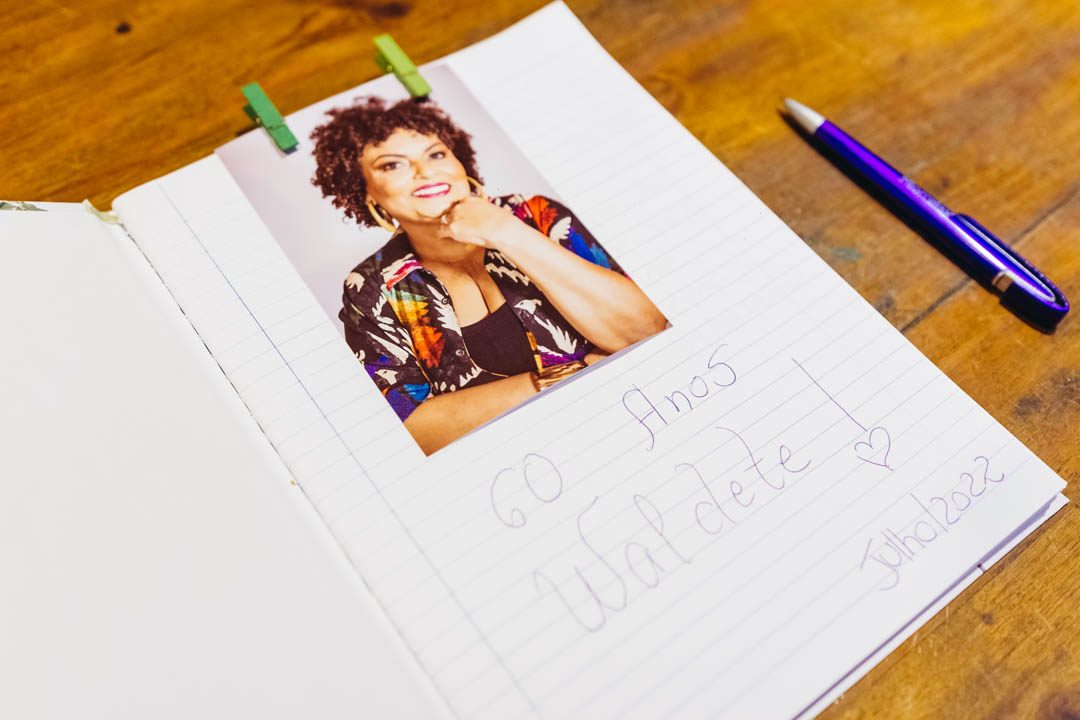 60 Anos
Waldete !
Julho/2022